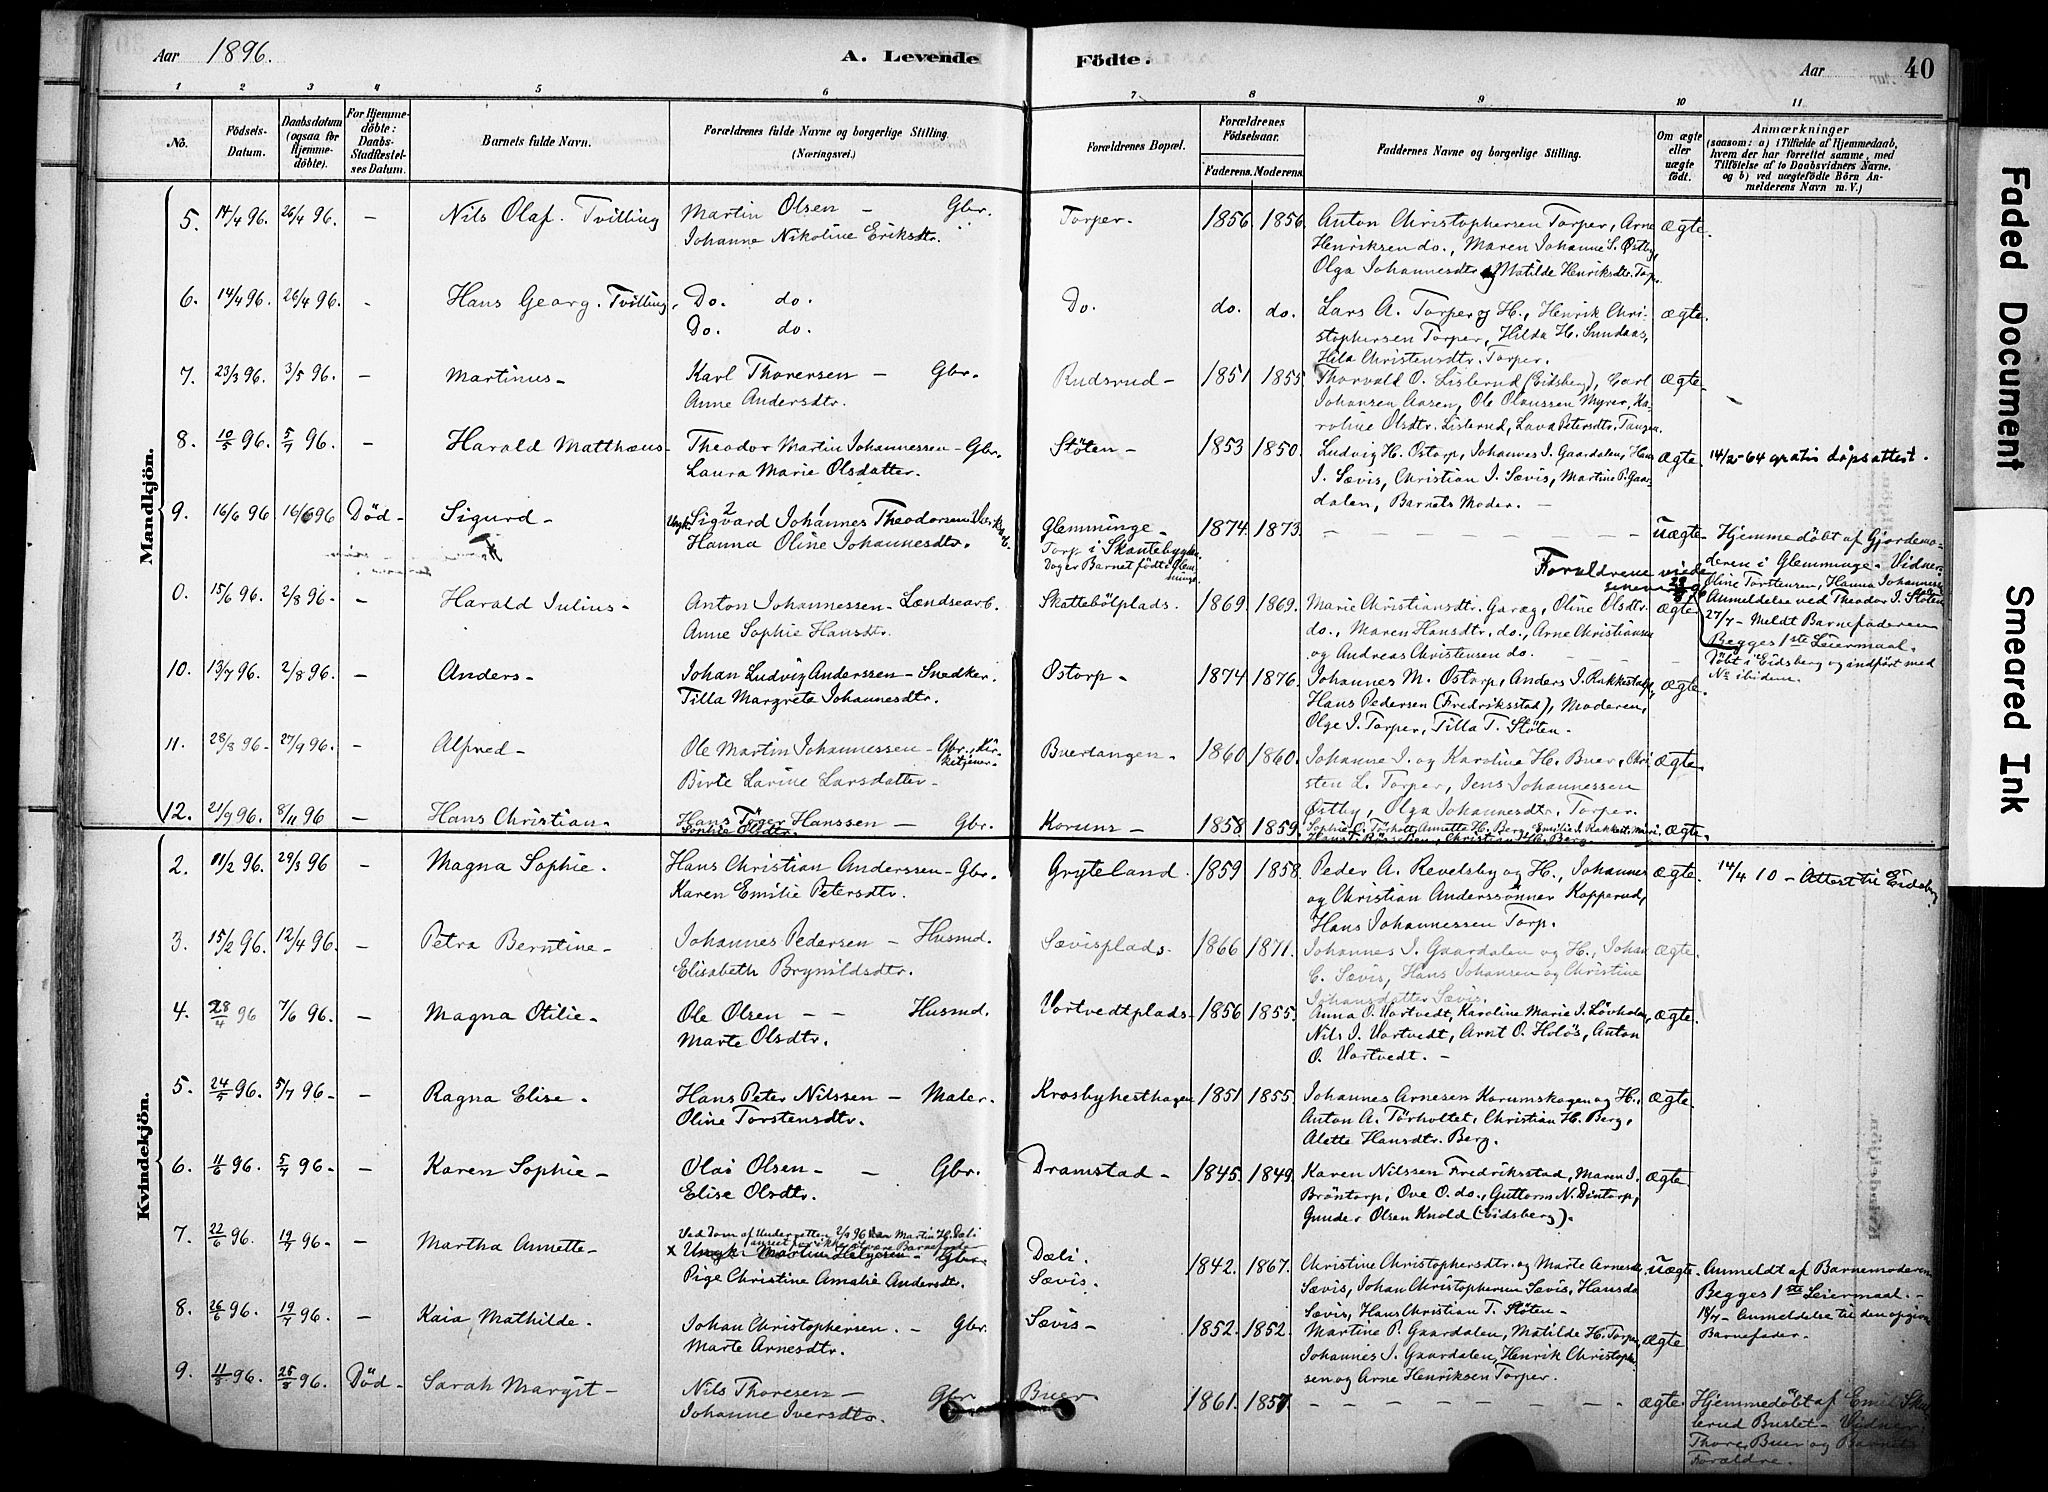 Aar 1896.
A. Levende Födte.
Aar 40
1 2 3 4 5 6 7 8 9 10 11
No.
Födsels-Datum.
Daabsdatum (ogsaa for Hjemmedöbte).
For Hjemmedöbte: Daabs-Stadfæstelses Datum.
Barnets fulde Navn.
Forældrenes fulde Navne og borgerlige Stilling. (Næringsvei.)
Forældrenes Bopæl.
Forældrenes Födselsaar.
Faderens. Moderens.
Faddernes Navne og borgerlige Stilling.
Om ægte eller uægte födt.
Anmærkninger
(saasom: a) i Tilfælde af Hjemmedaab, hvem der har forrettet samme, med Tilföielse af to Daabsvidners Navne. og b) ved uægtefödte Börn Anmelderens Navn m. V.)
Mandkjön.
5. 14/4 96. 26/4 96. – Nils Olaf. Tvilling Martin Olsen – Gbr. Torper. 1856. 1856. Anton Christophersen Torper, Arne ægte.
Johanne Nikoline Eriksdtr. Henriksen do., Maren Johanne S. Østby,
Olga Johannesdtr. og Matilde Henriksdtr. Torp.
6. 14/4 96. 26/4 96. – Hans Georg. Tvilling, Do. do. Do. do. do. Lars A. Torper og H., Henrik Chri- ægte.
Do. do. stophersen Torper, Hilda H. Sundaas,
Hila Christensdtr. Torper.
7. 23/3 96. 3/5 96. – Martinus – Karl Thorersen – Gbr. Rudsrud – 1851 1855. Thorvald O. Lislerud (Eidsberg), Carl ægte.
Anne Andersdtr. Johansen Aasen, Ole Olaussen Myrer, Ka-
roline Olsdtr. Lislerud, Lava Petersdtr. Tangen.
8. 10/5 96. 5/7 96. – Harald Matthæus – Theodor Martin Johannessen – Gbr. Stöten – 1853 1850. Ludvig H. Ostorp, Johannes I. Gaardalen, Hans ægte. 14/2-64 gratis dåpsattest.
Laura Marie Olsdatter. I. Sævis, Christian I. Sævis, Martine P. Gaar-
dalen, Barnets Moder. –
9. 16/6 96 16/6 96 Död – Sigurd – Ungk. Sigvard Johannes Theodorsen Glemminge – 1874. 1873. – uægte – Hjemmedöbt af Gjordemo-
Hanna Oline Johannesdtr. Torp i Skantebygden. deren i Glemminge – Vidner:
Dog er Barnet födt i Glemminge. Forældrene viede senere Oline Torstensen, Hanna Johannesen
Anmeldelse ved Theodor I. Stöten
27/7 – Meldt Barnefaderen
Begges 1ste Leiermaal.
0. 15/6 96. 2/8 96 – – Harald Julius – Anton Johannessen – Landsearb. Skattebölplads. 1869. 1869. Marie Christiansdtr. Garæg, Oline Olsdtr. ægte
Anne Sophie Hansdtr. do., Maren Hansdtr. do., Arne Christiansen
og Andreas Christensen do.
Döbt i Eidsberg og indfört med No ibidem.
10. 13/7 96. 2/8 96. – Anders – Johan Ludvig Anderssen – Snedker. Ostorp – 1874 1876. Johannes M. Ostorp, Anders I. Rakkestad, ægte.
Tilla Margrete Johannesdtr. Hans Pedersen (Fredriksstad), Moderen,
Olge I. Torper, Tilla T. Stöten.
11. 28/8 96 – 27/9 96. – Alfred – Ole Martin Johannessen – Gbr., Kirketjener. Buertangen – 1860 1860. Johanne I. og Karoline H. Buer, Chri- ægte.
Birte Larine Larsdatter – sten L. Torper, Jens Johannessen
Østby, Olga Johannesdtr. Torper.
12. 21/9 96. 8/11 96 – Hans Christian. Hans Töger Hanssen – Gbr. Korum – 1858. 1859. Sophie O. Törholt, Annette H. Berg, Emilie I. Rakkest., ægte.
Sophie Olsdtr. Christian H. Berg.
Kvindekjön.
2. 11/2 96. 29/3 96 – Magna Sophie. Hans Christian Anderssen – Gbr. Gryteland. 1859 1858. Peder A. Revelsby og H., Johannes ægte. 14/4 10 – Attest til Eidsberg
Karen Emilie Petersdtr. og Christian Anderssönner Kopperud,
Hans Johannessen Torp.
3. 15/2 96. 12/4 96. – Petra Berntine – Johannes Pedersen – Husmd. Sævisplads. 1866 1871. Johannes I. Gaardalen og H., Johan ægte.
Elisabeth Brynildsdtr. C. Sævis, Hans Johansen og Christine
Johansdatter Sævis.
4. 28/4 96 7/6 96. – Magna Otilie – Ole Olsen – – Husmd. Vortvedtplads. 1856 1855. Anna O. Vortvedt, Karoline Marie I. Lövholen, ægte.
Marte Olsdtr. Nils I. Vortvedt, Arnt O. Holös, Anton
O. Vortvedt. –
5. 24/5 96. 5/7 96. – Ragna Elise. Hans Peter Nilssen – Maler. Krosbyhesthagen 1851 1855. Johannes Arnesen Korumskogen og H., ægte.
Oline Torstensdtr. Anton A. Törholtet, Christian H. Berg,
Alette Hansdtr. Berg.
6. 11/6 96. 5/7 96. – Karen Sophie – Olai Olsen – – Gbr. Dramstad – 1845. 1849. Karen Nilssen Fredriksstad, Maren I. ægte.
Elise Olsdtr. Bröntorp, Ove O. do., Guttorm N. Dintorp,
Gunder Olsen Knold (Eidsberg).
7. 22/6 96. 19/7 96. – Martha Annette – Ved Dom af Underretten 2/9 96 kan Martin H. Dæli
anseet for ikke at være Barnefader
x Ungk. Martin Helgesen – Gbr. Dæli. 1842. 1867. Christine Christophersdtr. og Marte Arnesdtr. uægte. Anmeldt af Barnemoderen
Pige Christine Amalie Andersdtr. Sævis. Sævis, Johan Christophersen Sævis, Hansda Begges 1ste Leiermaal. –
Sævis, Hans Christian T. Stöten – 18/7 – Anmeldelse til den opgivne Barnefader.
8. 26/6 96. 19/7 96. – Kaia Mathilde. Johan Christophersen. – Gbr. Sævis – 1852. 1852. Martine P. Gaardalen, Matilde H. Torper, ægte
Marte Arnesdtr. Johannes I. Gaardalen, Henrik Christopher-
sen og Arne Henriksen Torper.
9. 11/8 96. 25/8 96. Död – Sarah Margit – Nils Thoresen – Gbr Buer 1861. 1857. – ægte Hjemmedöbt af Emil Skul-
Johanne Iversdtr. lerud Buslet – Vidner:
Thore Buer og Barnets
Forældre.
Faded Document
Smeared Ink